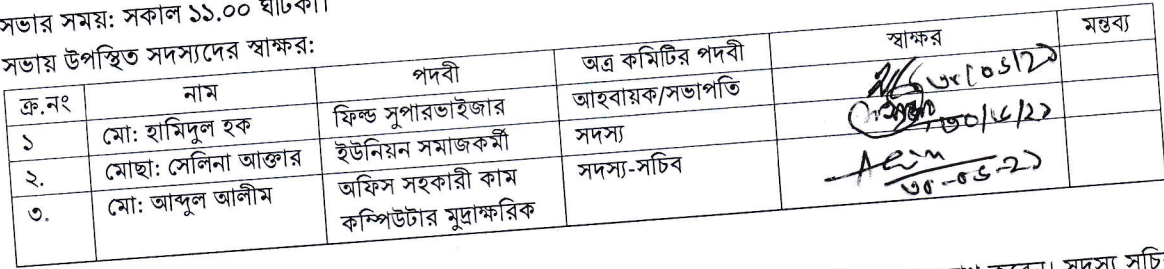 সভার সময়: সকাল ১১.০০ ঘটিকা।
সভায় উপস্থিত সদস্যদের স্বাক্ষর:
ক্র.নং নাম পদবী অত্র কমিটির পদবী স্বাক্ষর মন্তব্য
১ মো: হামিদুল হক ফিল্ড সুপারভাইজার আহবায়ক/সভাপতি
২. মোছা: সেলিনা আক্তার ইউনিয়ন সমাজকর্মী সদস্য
৩. মো: আব্দুল আলীম অফিস সহকারী কাম সদস্য-সচিব
কম্পিউটার মুদ্রাক্ষরিক
সদস্য সচি